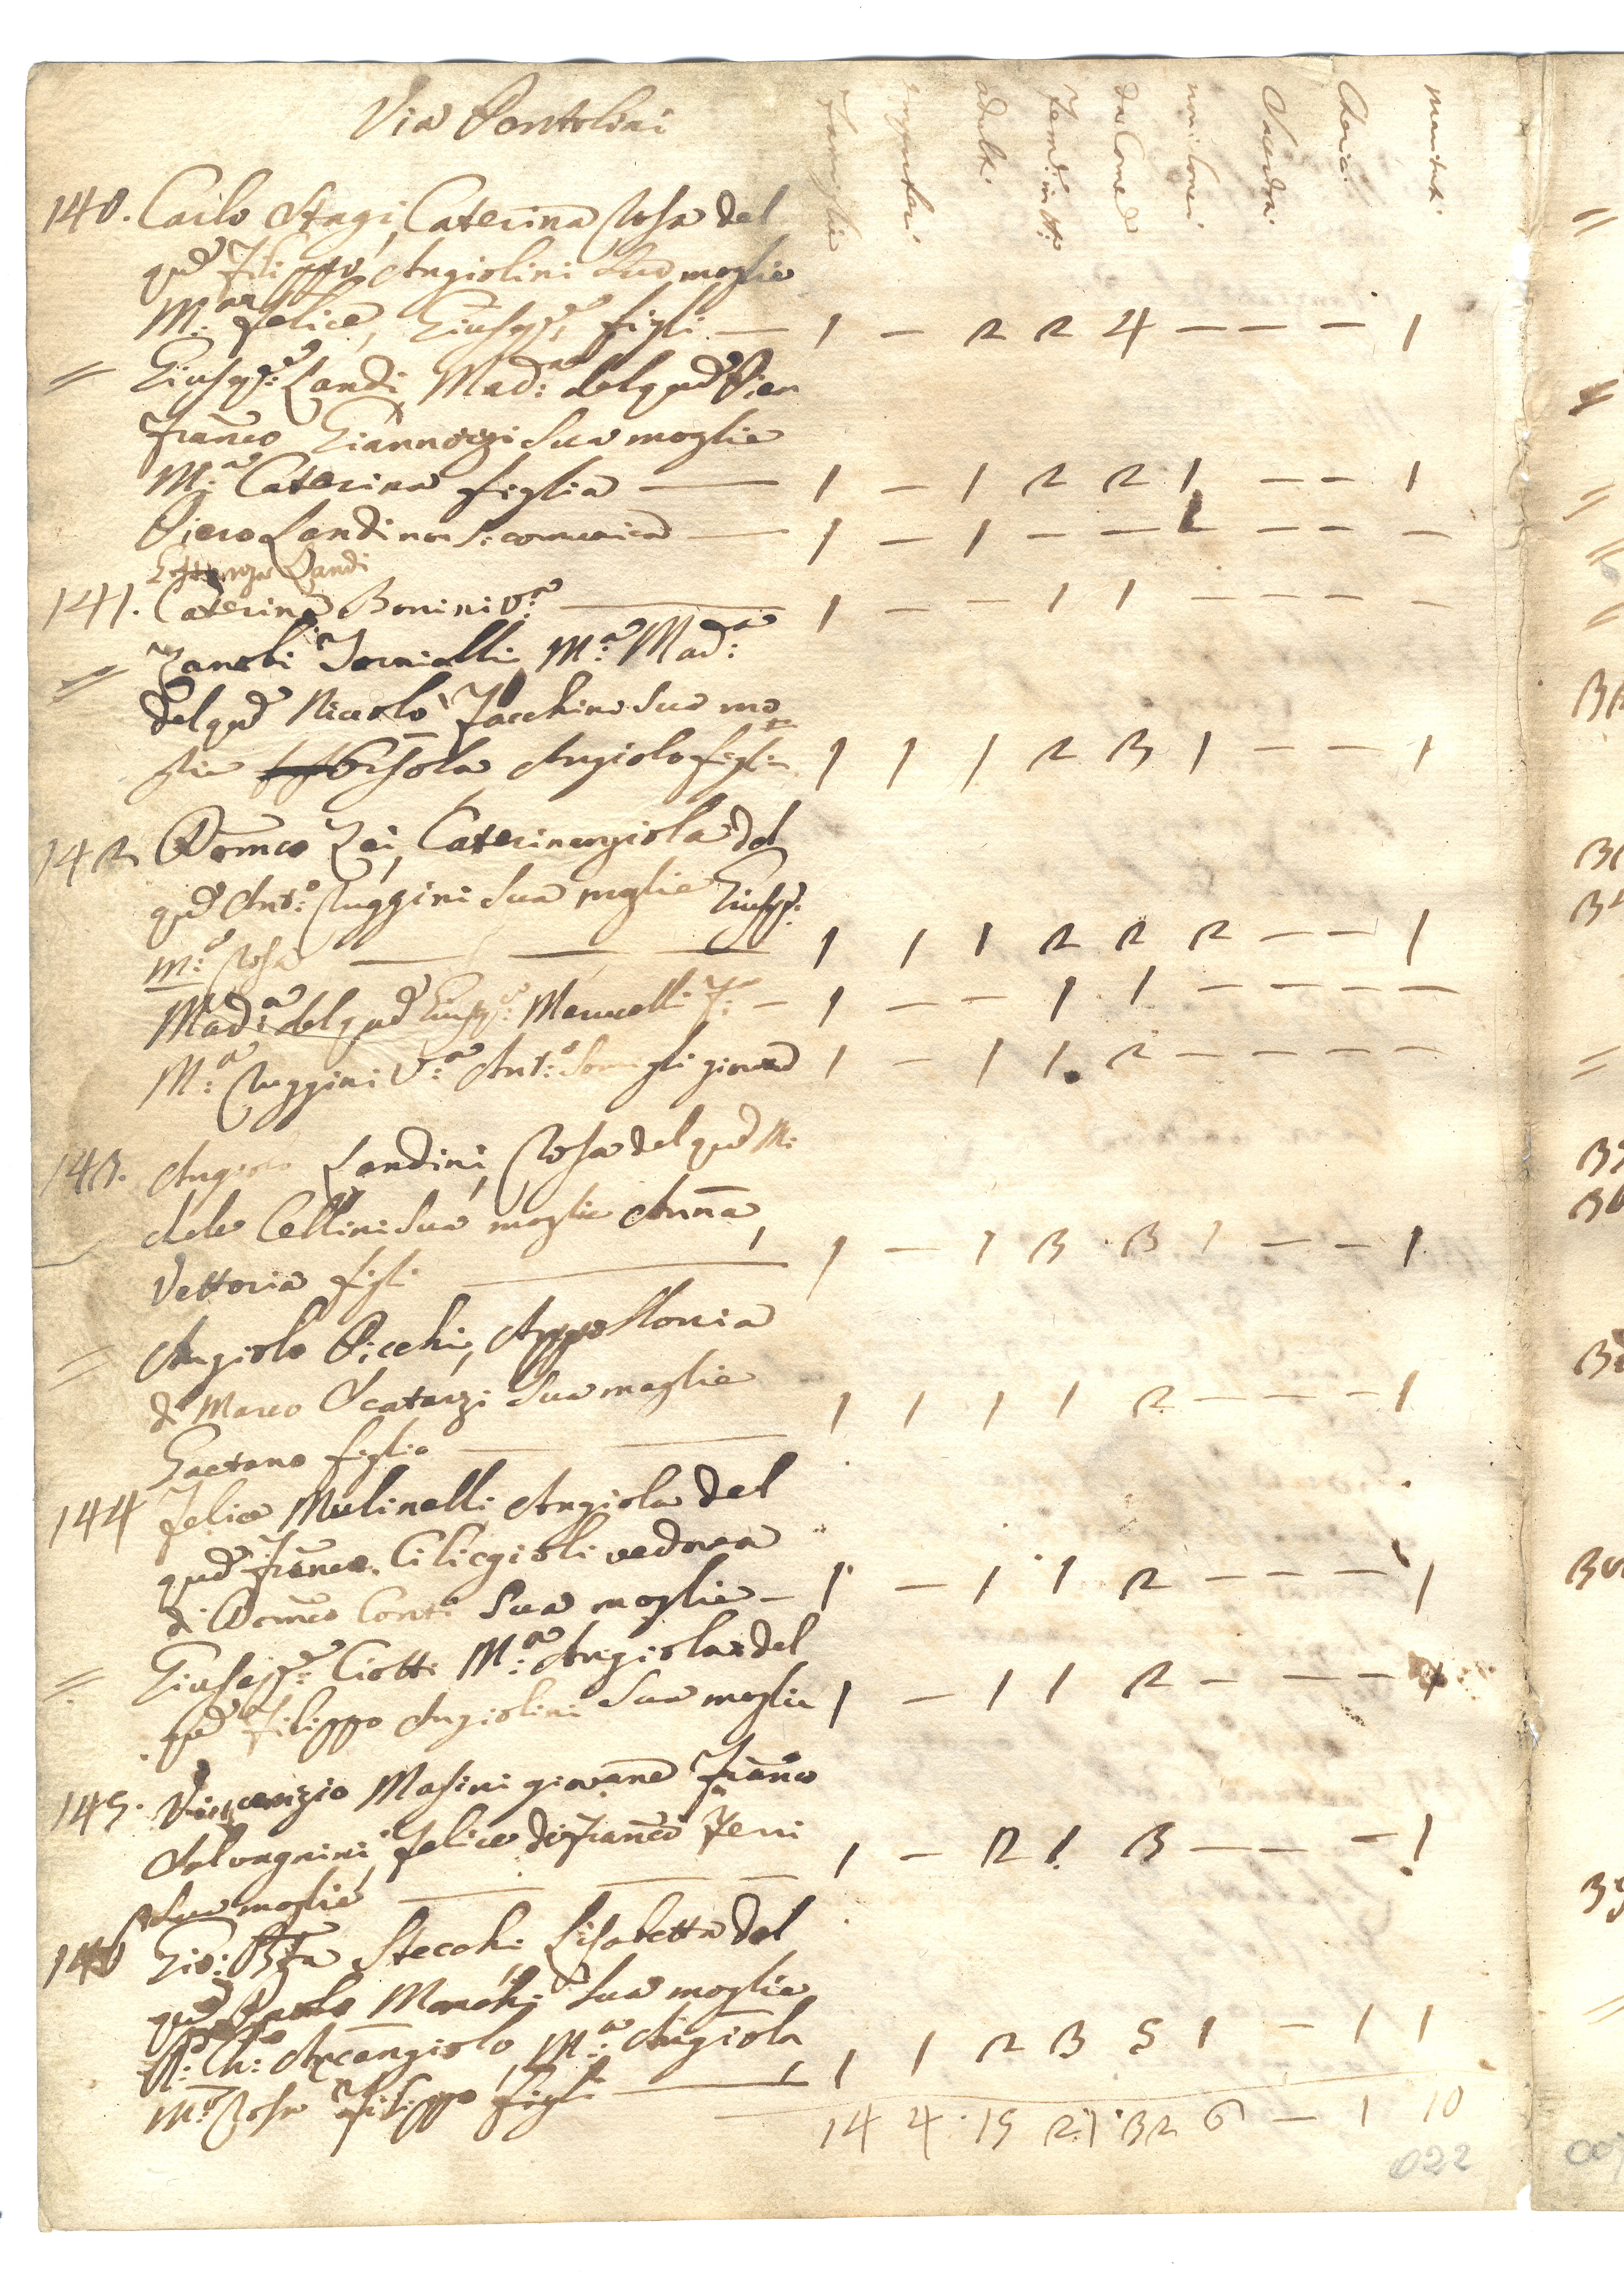 Via Pentolini
Famiglie impuberi adulti Femᵉ in tt: da Comᵉ non Comᵉ Sacerdoti Cherici maritati
140. Carlo Stagi, Caterina Rosa del
qᵐ Filippo Angiolini sua moglie
M:ª Felice, Giusepᵉ figli — 1 — 2 2 4 — — — 1
= Giusepᵉ: Landi, Mad:ª del qᵐ Pier
Franco Giannozzi sua moglie
M:ª Caterina figlia — 1 — 1 2 2 1 — — 1
Piero Landi non si comunica — 1 — 1 — — 1 — — —
Landi
141. Caterina Bonini Vª — 1 — — 1 1 — — — —
= Zanobi M:ª Mad:ª
del qᵐ Niccolò Facchini sua mo
glie Orsola Angiolo figli 1 1 1 2 3 1 — — 1
142 Domco Zei, Caterinangiola del
qᵐ Ant:º Ruggini sua moglie Giusepᵉ:
M:ª Rosa — 1 1 1 2 2 2 — — 1
Mad:ª del qᵐ Giusepᵉ: Manuelli F: — 1 — — 1 1 — — — —
M:ª Ruggini V:ª Ant:º giovane 1 — 1 1 2 — — — —
143. Angiolo Landini, Rosa del qᵐ Mi
chele Cellini sua moglie Anna,
Vettoria figli — 1 — 1 3 3 1 — — 1
= Angiolo Picchi, Appollonia
di Marco Scatarzi sua moglie
Gaetano figlio — 1 1 1 1 2 — — — 1
144 Felice Mulinelli, Angiola del
qᵐ Franco. Ciliegioli vedova
di Domco Conti sua moglie — 1 — 1 1 2 — — — 1
= Giusepᵉ: Ciotti M:ª Angiola del
qᵐ Filippo Angiolini sua moglie 1 — 1 1 2 — — — 1
145. Vincenzio Masini giovane Franco
Felice di Franco
sua moglie — 1 — 2 1 3 — — — 1
146 Gio: Bta Stecchi Lisabetta del
qᵐ Paolo Marchi sua moglie
Arcangiolo, M:ª Angiola
M:ª Rosa Filippo figli — 1 1 2 3 5 1 — 1 1
14 4 15 21 32 6 — 1 10
022